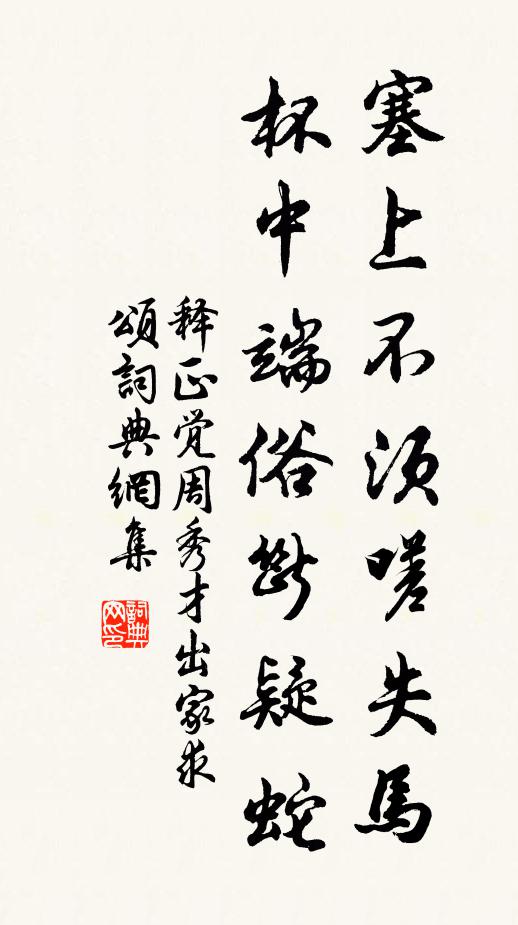 塞上不须嗟失馬
杯中端俗断疑蛇
释正觉周秀才出家求
頌詞典網集
詞典网印